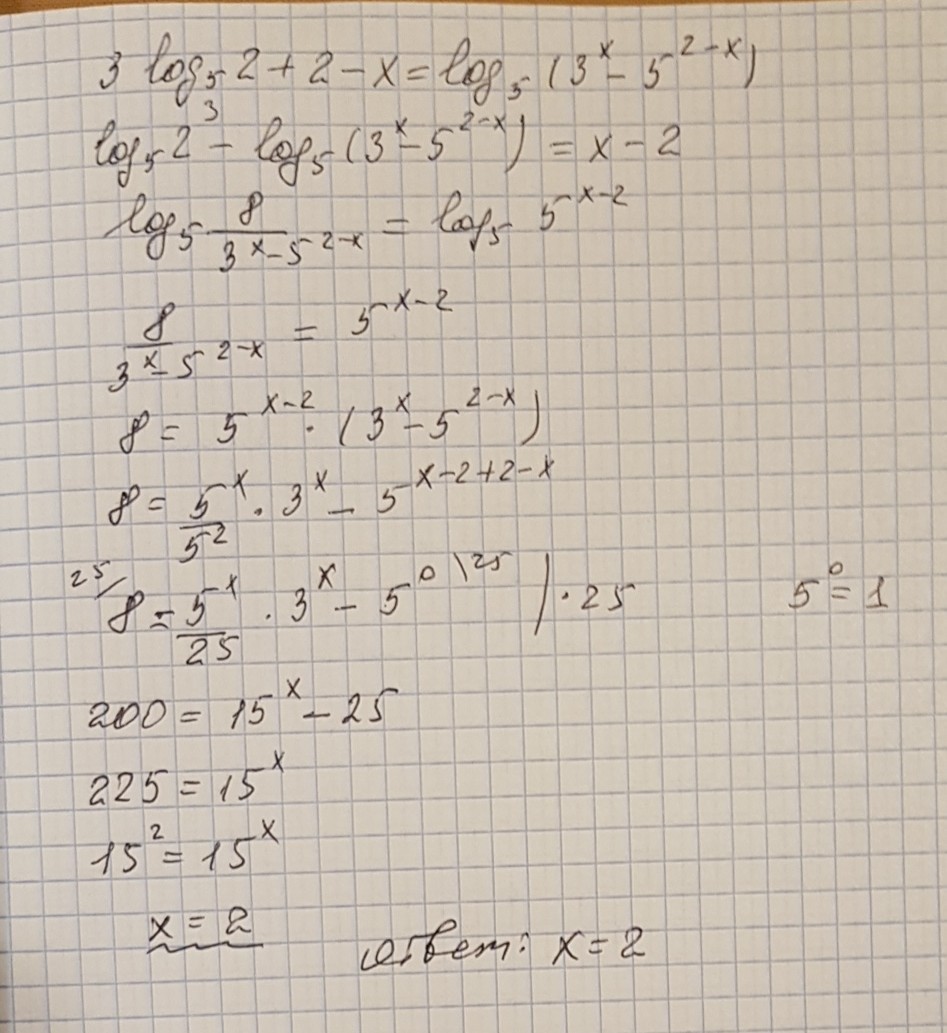 3 log₅ 2 + 2 − x = log₅ (3ˣ − 5²⁻ˣ)
log₅ 2³ − log₅ (3ˣ − 5²⁻ˣ) = x − 2
log₅ 8/(3ˣ − 5²⁻ˣ) = log₅ 5ˣ⁻²
8/(3ˣ − 5²⁻ˣ) = 5ˣ⁻²
8 = 5ˣ⁻² · (3ˣ − 5²⁻ˣ)
8 = 5ˣ/5² · 3ˣ − 5ˣ⁻²⁺²⁻ˣ
²⁵/ 8 = 5ˣ/25 · 3ˣ − 5⁰ \²⁵ | · 25 5⁰ = 1
200 = 15ˣ − 25
225 = 15ˣ
15² = 15ˣ
x = 2
ответ: x = 2